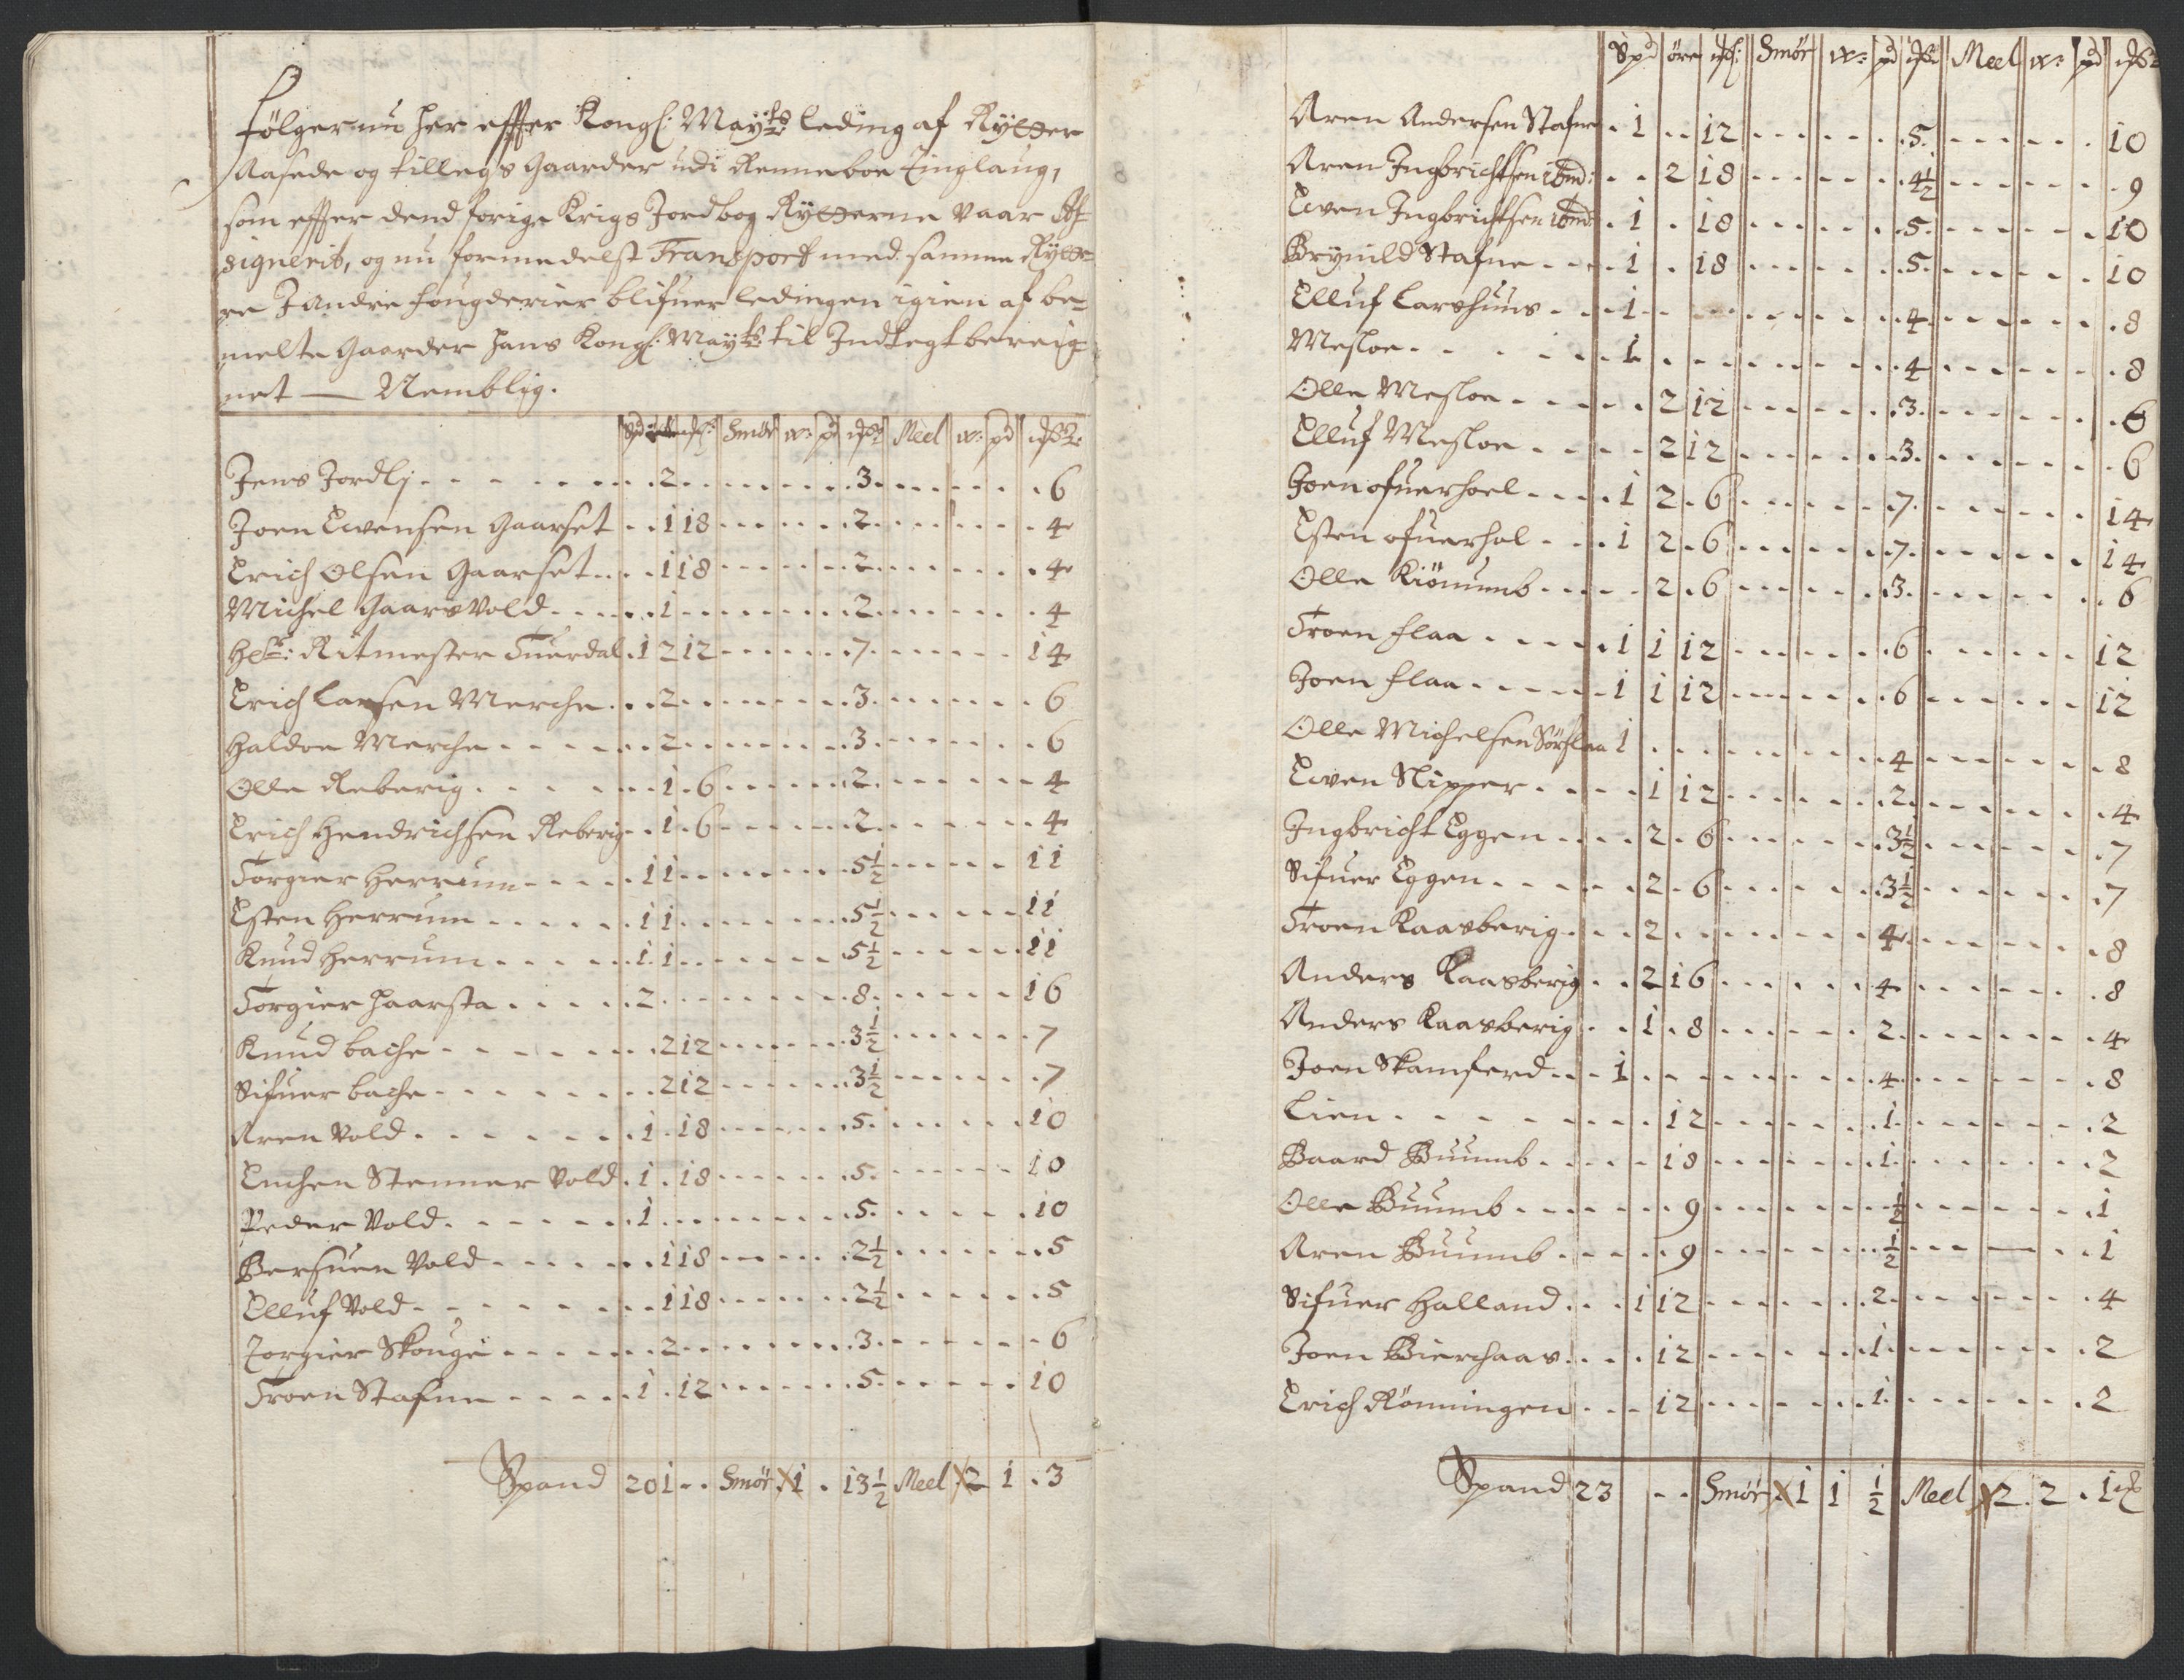 Følger nu her effter Kongl: May:ts leding af Rytter
Aasæde og tillegs Gaarder udi Renneboe Tinglaug,
som effter dend forige Krigs Jordbog Rytterne vaar As-
signerit, og nu formedelst Transport med samme Rytte-
re J andre fougderier blifuer ledingen igien af be-
melte Gaarder hans Kongl: May:ts til Indtegt bereig-
net — Nemblig.
Spd øre Smør w: pd Meel w: pd
Jens Jordli 2 3 6
Joen Ewensen Gaarset 1 18 2 4
Erich Olsen Gaarset 1 18 2 4
Michel Gaarsvold 1 2 4
Hr: Ritmester Tuerdal 1 2 12 7 14
Erich Larsen Merche 2 3 6
Haldoe Merche 2 3 6
Olle Reberig 1 6 2 4
Erich Hendrichsen Reberig 1 6 2 4
Torgier Herrum 1 1 5½ 11
Esten Herrum 1 1 5½ 11
Knud Herrum 1 1 5½ 11
Torgier Haarsta 2 8 16
Knud bache 2 12 3½ 7
Sifuer bache 2 12 3½ 7
Aren Vold 1 18 5 10
Enchen Stenner Vold 1 18 5 10
Peder Vold 1 5 10
Bersuen Vold 1 18 2½ 5
Elluf Vold 1 18 2½ 5
Torgier Skouge 2 3 6
Troen Stafne 1 12 5 10
Spand 20 1 Smør 1 13½ Meel 2 1 3
Spd øre Smør w: pd Meel w: pd
Aren Andersen Stafne 1 12 5 10
Aren Ingbrichtsen ibmd: 2 18 4½ 9
Ewen Ingbrichtsen ibmd: 1 18 5 10
Brynild Stafne 1 18 5 10
Elluf Larshuus 1 4 8
Mesloe 1 4 8
Olle Mesloe 2 12 3 6
Elluf Mesloe 2 12 3 6
Joen ofuerhoel 1 2 6 7 14
Esten ofuerhol 1 2 6 7 14
Olle Kiønumb 2 6 3 6
Troen flaa 1 1 12 6 12
Joen flaa 1 1 12 6 12
Olle Michelsen Sørflaa 1 4 8
Ewen Slipper 1 12 2 4
Ingbricht Eggen 2 6 3½ 7
Sifuer Eggen 2 6 3½ 7
Troen Kaasberig 2 4 8
Anders Kaasberig 2 16 4 8
Anders Kaasberig 1 8 2 4
Joen Skamferd 1 4 8
Lien 12 1 2
Baard Buumb 18 1 2
Olle Buumb 9 ½ 1
Aren Buumb 9 ½ 1
Sifuer Halland 1 12 2 4
Joen Bierchaas 12 1 2
Erich Rønningen 12 1 2
Spand 23 Smør 1 1 ½ Meel 2 2 1